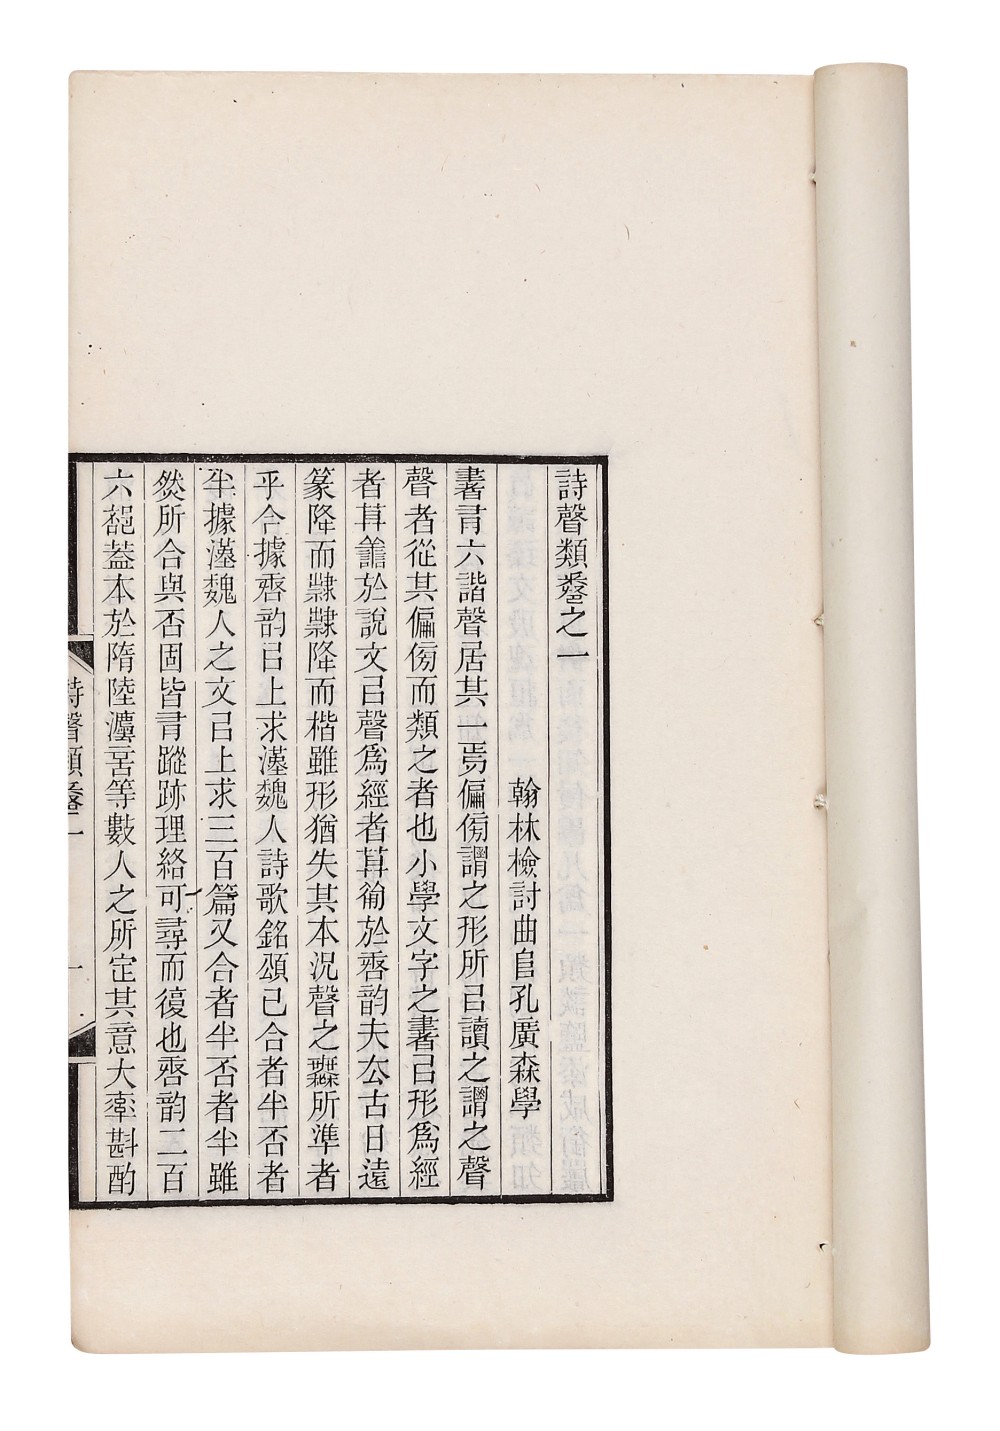 詩聲類卷之一
翰林檢討曲阜孔廣森學
書有六諧聲居其一焉偏傍謂之形所㠯讀之謂之聲
聲者從其偏傍而類之者也小學文字之書㠯形爲經
者莫善於說文㠯聲爲經者莫葡於唐韵夫去古日遠
篆降而隸隸降而楷雖形猶失其本況聲之無所準者
乎今據唐韵㠯上求漢魏人詩歌銘頌已合者半否者
半據漢魏人之文㠯上求三百篇又合者半否者半雖
然所合與否固皆有蹤跡理絡可尋而復也唐韵二百
六部葢本於隋陸灋言等數人之所定其意大率斟酌
詩聲類卷一
一